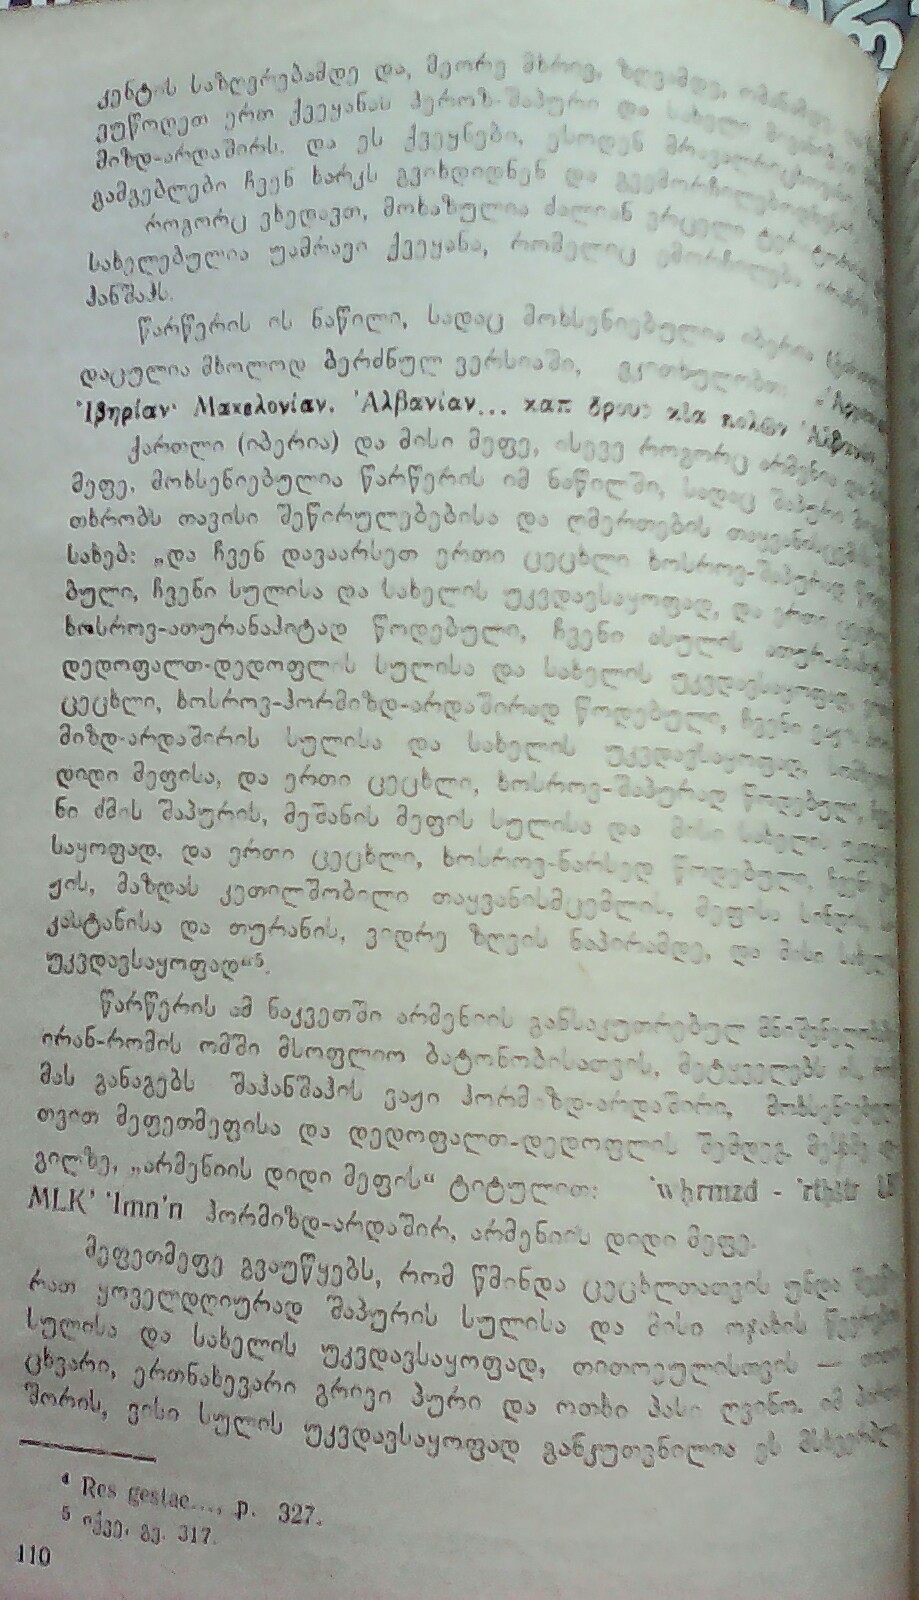 კენტის საზღვრებამდე და, მეორე მხრივ, ზღვამდე,
ვუწოდეთ ერთ ქვეყანას პეროზ-შაპური და სახელი
მიზდ-არდაშირს. და ეს ქვეყნები, ესოდენ მრავალრიცხოვანი
გამგებლები ჩვენ ხარკს გვიხდიდნენ და გვემორჩილებოდნენ
როგორც ვხედავთ, მოხაზულია ძალიან ვრცელი ტერიტორია
სახელებულია უამრავი ქვეყანა, რომელიც ემორჩილება ირანის
ჰანშაჰს.
წარწერის ის ნაწილი, სადაც მოხსენიებულია იბერია
დაცულია მხოლოდ ბერძნულ ვერსიაში, ვკითხულობთ:
Ἰβηρίαν· Μαχελονίαν. Ἀλβανίαν...
ქართლი (იბერია) და მისი მეფე, ისევე როგორც არმენია და
მეფე. მოხსენიებულია წარწერის იმ ნაწილში, სადაც შაპური
თხრობს თავისი შეწირულებებისა და ღმერთების თაყვანისცემის
სახებ: „და ჩვენ დავაარსეთ ერთი ცეცხლი ხოსროვ-შაპურად
ბული, ჩვენი სულისა და სახელის უკვდავსაყოფად, და ერთი
ხოსროვ-ათურანაპიტად წოდებული, ჩვენი ასულის
დედოფალთ-დედოფლის სულისა და სახელის უკვდავსაყოფად,
ცეცხლი, ხოსროვ-ჰორმიზდ-არდაშირად წოდებული, ჩვენი
მიზდ-არდაშირის სულისა და სახელის უკვდავსაყოფად,
დიდი მეფისა, და ერთი ცეცხლი, ხოსროვ-შაპურად წოდებული,
ნი ძმის შაპურის, მეშანის მეფის სულისა და მისი სახელის
საყოფად. და ერთი ცეცხლი, ხოსროვ-ნარსედ წოდებული, ჩვენი
ჟის, მაზდას კეთილშობილი თაყვანისმცემლის, მეფისა
კასტანისა და თურანის, ვიდრე ზღვის ნაპირამდე, და მისი
უკვდავსაყოფად“⁵.
წარწერის ამ ნაკვეთში არმენიის განსაკუთრებულ მნიშვნელობას
ირან-რომის ომში მსოფლიო ბატონობისათვის, მეტყველებს ის,
მას განაგებს შაჰანშაჰის ვაჟი ჰორმიზდ-არდაშირი,
თვით მეფეთმეფისა და დედოფალთ-დედოფლის შემდეგ,
გილზე, „არმენიის დიდი მეფის“ ტიტულით: 'whrmzd -
MLK' 'lmn'n ჰორმიზდ-არდაშირ, არმენიის დიდი მეფე.
მეფეთმეფე გვაუწყებს, რომ წმინდა ცეცხლთათვის უნდა
რათ ყოველდღიურად შაპურის სულისა და მისი ოჯახის
სულისა და სახელის უკვდავსაყოფად, თითოეულისთვის —
ცხვარი, ერთნახევარი გრივი პური და ოთხი პასი ღვინო. იმ
შორის, ვისი სულის უკვდავსაყოფად განკუთვნილია ეს
⁴ Res gestae..., p. 327.
⁵ იქვე, გვ. 317.
110